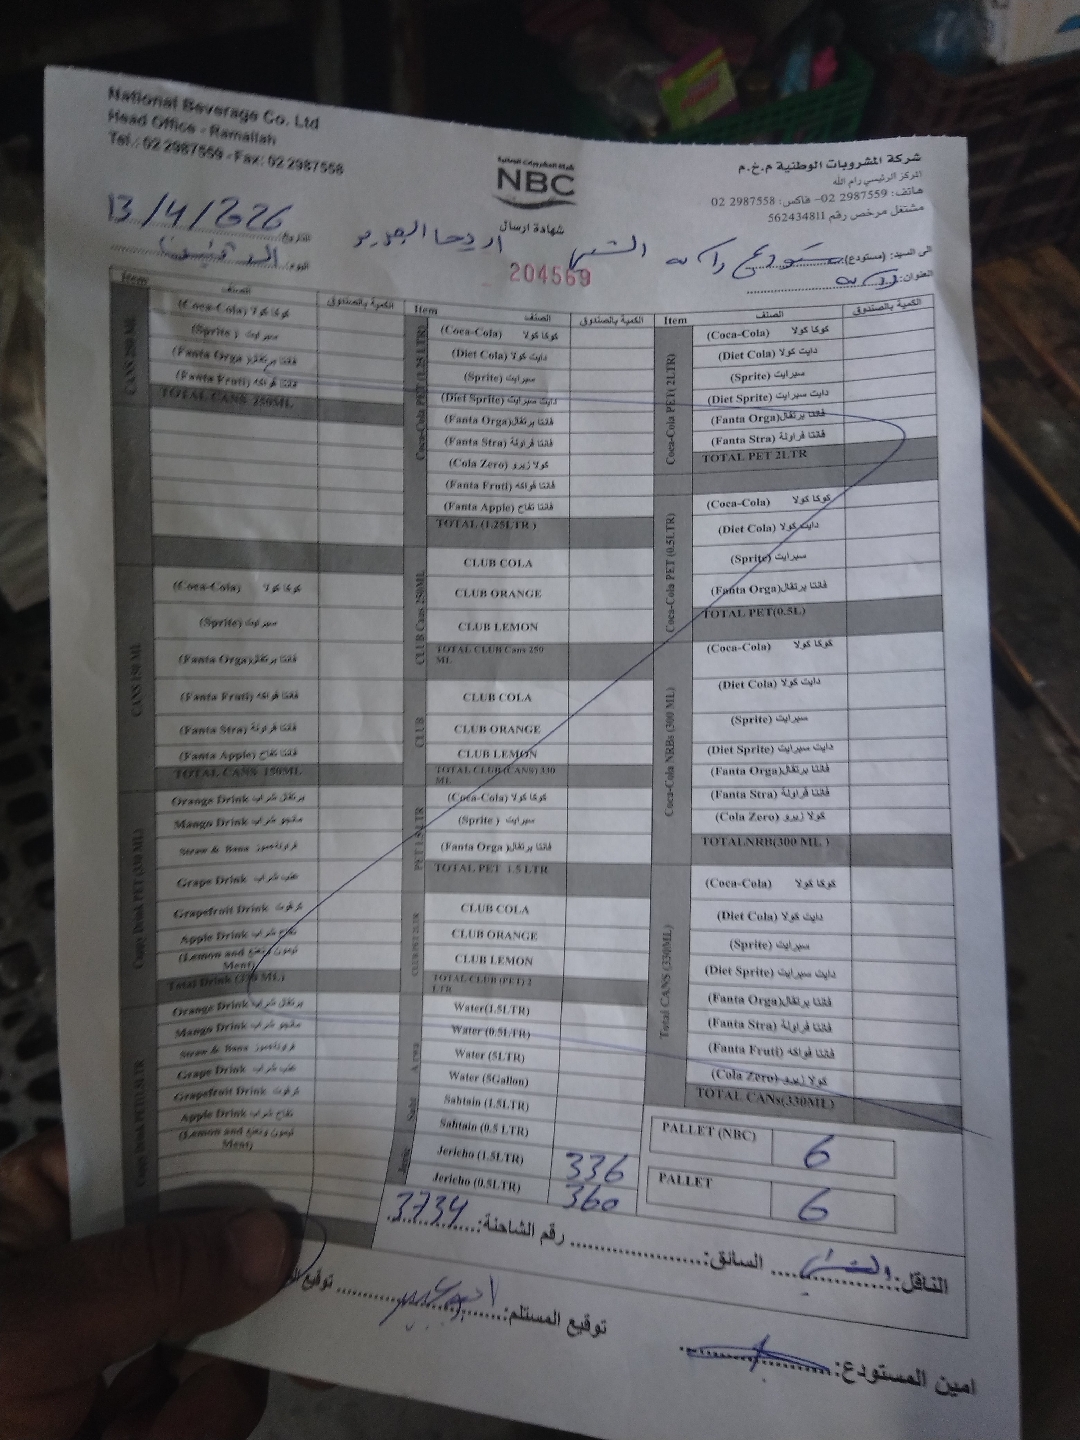 National Beverage Co. Ltd
Head Office - Ramallah
Tel.: 02 2987559 - Fax: 02 2987558
NBC
شركة المشروبات الوطنية م.خ.م
المركز الرئيسي رام الله
هاتف: 2987559 02- فاكس: 2987558 02
مشتغل مرخص رقم 562434811
شهادة ارسال
204569
13/4/2026 التاريخ
اليوم:
الى السيد: (مستودع):
العنوان:
Item الصنف الكمية بالصندوق
CANS 250 ML
(Coca-Cola) كوكا كولا
(Sprite) سبرايت
(Fanta Orga) فانتا برتقال
(Fanta Fruti) فانتا فواكه
TOTAL CANS 250ML
CANS 150 ML
(Coca-Cola) كوكا كولا
(Sprite) سبرايت
(Fanta Orga) فانتا برتقال
(Fanta Fruti) فانتا فواكه
(Fanta Stra) فانتا فراولة
(Fanta Apple) فانتا تفاح
TOTAL CANS 150ML
Cappy Drink PET (330 ML)
Orange Drink برتقال شراب
Mango Drink مانجو شراب
Straw & Bana فراولة موز
Grape Drink عنب شراب
Grapefruit Drink
Apple Drink تفاح شراب
(Lemon and Ment) ليمون ونعنع
Total Drink (330 ML)
Orange Drink برتقال شراب
Mango Drink مانجو شراب
Straw & Bana فراولة موز
Grape Drink عنب شراب
Grapefruit Drink
Apple Drink تفاح شراب
(Lemon and Ment) ليمون ونعنع
Item الصنف الكمية بالصندوق
Coca-Cola PET (1.25 LTR)
(Coca-Cola) كوكا كولا
(Diet Cola) دايت كولا
(Sprite) سبرايت
(Diet Sprite) دايت سبرايت
(Fanta Orga) فانتا برتقال
(Fanta Stra) فانتا فراولة
(Cola Zero) كولا زيرو
(Fanta Fruti) فانتا فواكه
(Fanta Apple) فانتا تفاح
TOTAL (1.25LTR )
CLUB Cans 250ML
CLUB COLA
CLUB ORANGE
CLUB LEMON
TOTAL CLUB Cans 250 ML
CLUB
CLUB COLA
CLUB ORANGE
CLUB LEMON
TOTAL CLUB (CANS) 330 ML
PET 1.5 LTR
(Coca-Cola) كوكا كولا
(Sprite ) سبرايت
(Fanta Orga ) فانتا برتقال
TOTAL PET 1.5 LTR
CLUB PET 2LTR
CLUB COLA
CLUB ORANGE
CLUB LEMON
TOTAL CLUB (PET) 2 LTR
Water(1.5LTR)
Water (0.5LTR)
Water (5LTR)
Water (5Gallon)
Sahtain (1.5LTR)
Sahtain (0.5 LTR)
Jericho (1.5LTR) 336
Jericho (0.5LTR) 360
Item الصنف الكمية بالصندوق
Coca-Cola PET( 2LTR)
(Coca-Cola) كوكا كولا
(Diet Cola) دايت كولا
(Sprite) سبرايت
(Diet Sprite) دايت سبرايت
(Fanta Orga) فانتا برتقال
(Fanta Stra) فانتا فراولة
TOTAL PET 2LTR
Coca-Cola PET (0.5LTR)
(Coca-Cola) كوكا كولا
(Diet Cola) دايت كولا
(Sprite) سبرايت
(Fanta Orga) فانتا برتقال
TOTAL PET(0.5L)
Coca-Cola NRBs (300 ML)
(Coca-Cola) كوكا كولا
(Diet Cola) دايت كولا
(Sprite) سبرايت
(Diet Sprite) دايت سبرايت
(Fanta Orga) فانتا برتقال
(Fanta Stra) فانتا فراولة
(Cola Zero) كولا زيرو
TOTALNRB(300 ML )
Total CANS (330ML)
(Coca-Cola) كوكا كولا
(Diet Cola) دايت كولا
(Sprite) سبرايت
(Diet Sprite) دايت سبرايت
(Fanta Orga) فانتا برتقال
(Fanta Stra) فانتا فراولة
(Fanta Fruti) فانتا فواكه
(Cola Zero) كولا زيرو
TOTAL CANs(330ML)
PALLET (NBC) 6
PALLET 6
الناقل: السائق: رقم الشاحنة: 3734
توقيع المستلم: توقيع
امين المستودع: